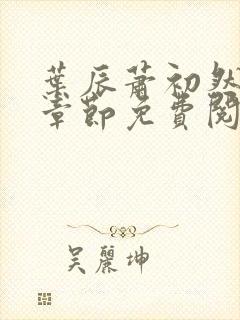 葉辰蕭初然
章節免費閱
吳麗坤